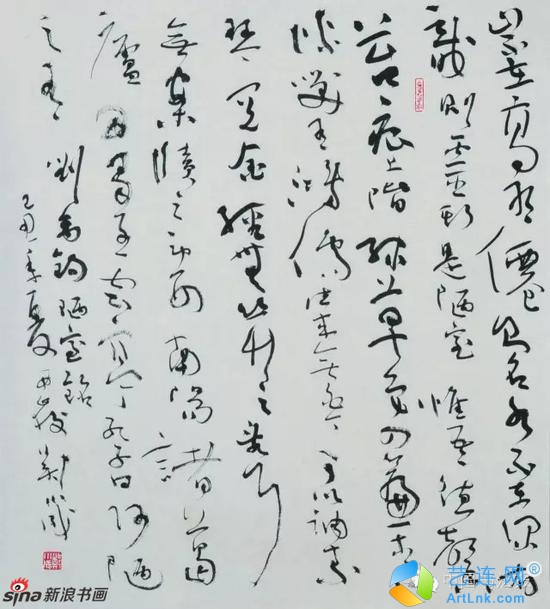 山不在高有僊則名水不在深有
龍則靈斯是陋室惟吾德馨
苔痕上階綠草色入簾青
談笑有鴻儒往来無白丁可以調素
琴閱金經無絲竹之亂耳
無案牘之勞形南陽諸葛
廬西蜀子雲亭孔子曰何陋
之有 劉禹錫陋室銘
季夏
sina新浪书画
艺连网
ArtLnk.com